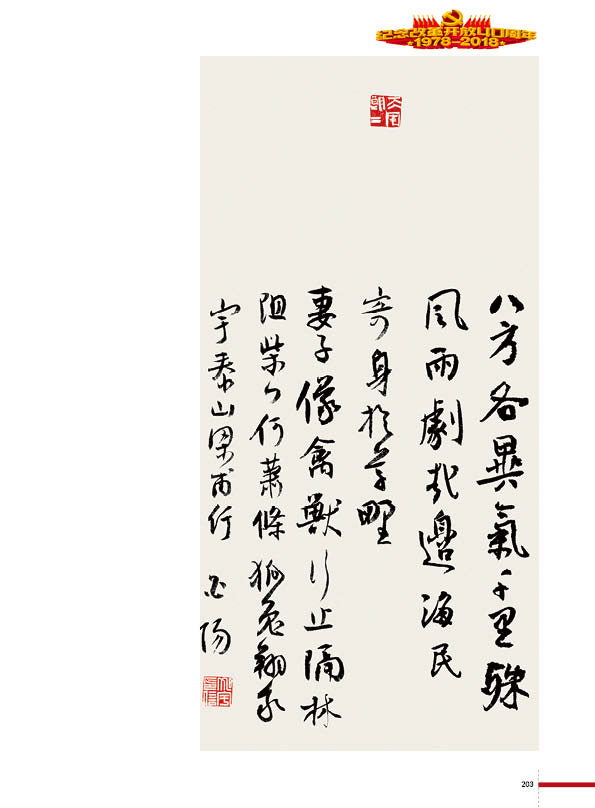 纪念改革开放40周年
1978-2018
八方各異氣千里殊
風雨劇哉邊海民
寄身於草野
妻子像禽獸行止隔林
阻柴門何蕭條狐兔翔我
宇泰山梁甫行 陽
203